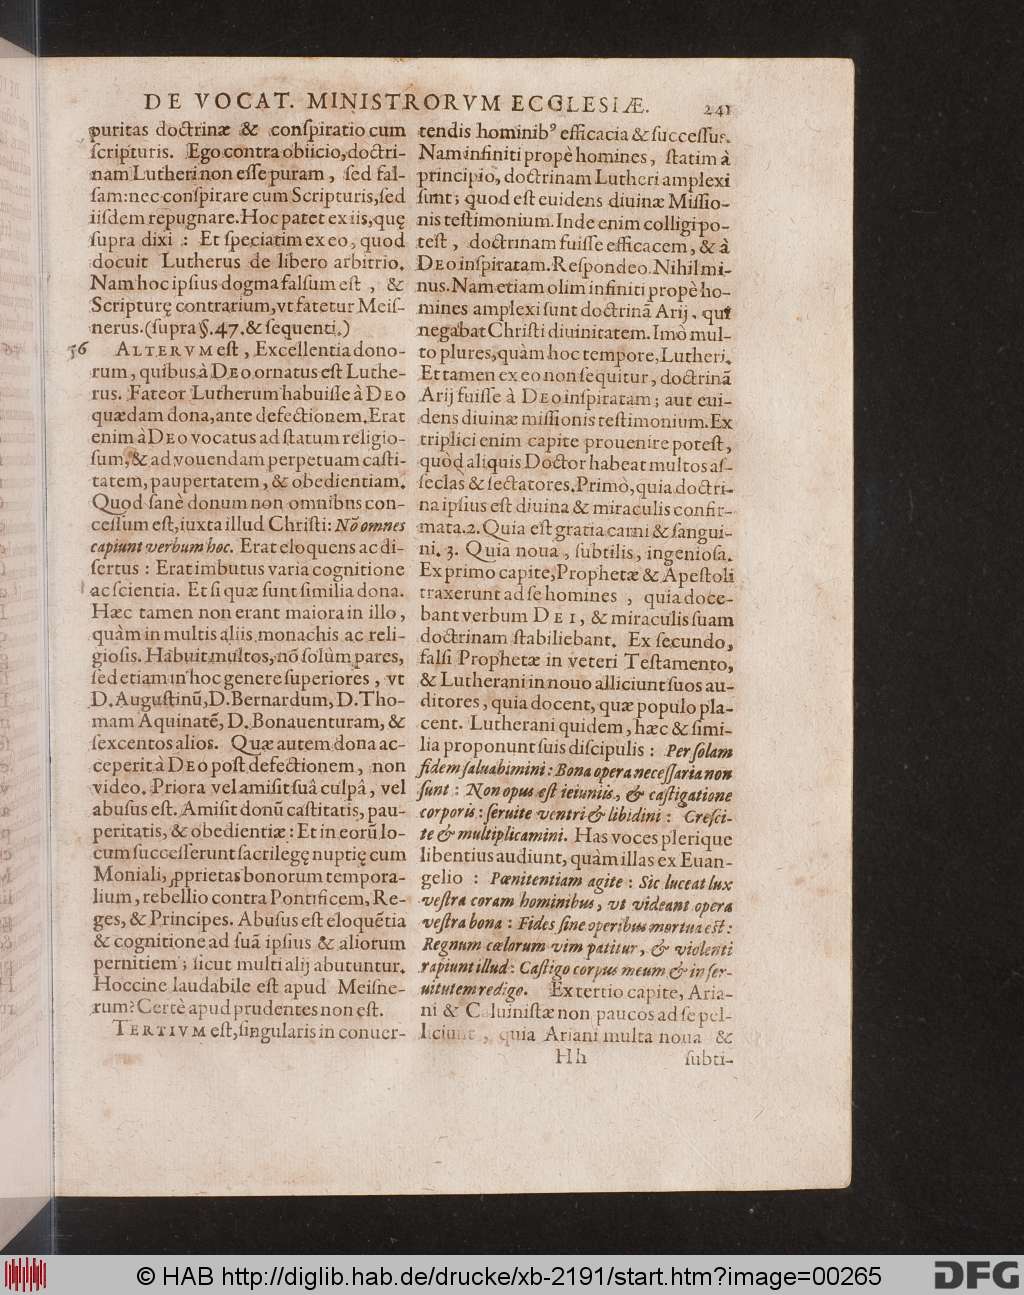 DE VOCAT. MINISTRORVM ECCLESIÆ. 241
puritas doctrinæ & conſpiratio cum
ſcripturis. Ego contra obiicio, doctri-
nam Lutheri non eſſe puram, ſed fal-
ſam: nec conſpirare cum Scripturis, ſed
iiſdem repugnare. Hoc patet ex iis, quę
ſupra dixi : Et ſpeciatim ex eo, quod
docuit Lutherus de libero arbitrio.
Nam hoc ipſius dogma falſum eſt, &
Scripturę contrarium, vt fatetur Meiſ-
nerus. (ſupra §. 47. & ſequenti.)
56 ALTERVM eſt, Excellentia dono-
rum, quibus à DEO ornatus eſt Luthe-
rus. Fateor Lutherum habuiſſe à DEO
quædam dona, ante defectionem. Erat
enim à DEO vocatus ad ſtatum religio-
ſum, & ad vouendam perpetuam caſti-
tatem, paupertatem, & obedientiam.
Quod ſanè donum non omnibus con-
ceſſum eſt, iuxta illud Chriſti: Nõ omnes
capiunt verbum hoc. Erat eloquens ac di-
ſertus : Erat imbutus varia cognitione
ac ſcientia. Et ſi quæ ſunt ſimilia dona.
Hæc tamen non erant maiora in illo,
quàm in multis aliis monachis ac reli-
gioſis. Habuit multos, nõ ſolùm pares,
ſed etiam in hoc genere ſuperiores, vt
D. Auguſtinũ, D. Bernardum, D. Tho-
mam Aquinatẽ, D. Bonauenturam, &
ſexcentos alios. Quæ autem dona ac-
ceperit à DEO poſt defectionem, non
video. Priora vel amiſit ſuâ culpâ, vel
abuſus eſt. Amiſit donũ caſtitatis, pau-
peritatis, & obedientiæ: Et in eorũ lo-
cum ſucceſſerunt ſacrilegę nuptię cum
Moniali, ꝓprietas bonorum tempora-
lium, rebellio contra Pontificem, Re-
ges, & Principes. Abuſus eſt eloquẽtia
& cognitione ad ſuã ipſius & aliorum
pernitiem; ſicut multi alij abutuntur.
Hoccine laudabile eſt apud Meiſne-
rum? Certè apud prudentes non eſt.
TERTIVM eſt, ſingularis in conuer-
tendis hominibꝰ efficacia & ſucceſſus.
Nam infiniti propè homines, ſtatim à
principio, doctrinam Lutheri amplexi
ſunt; quod eſt euidens diuinæ Miſſio-
nis teſtimonium. Inde enim colligi po-
teſt, doctrinam fuiſſe efficacem, & à
DEO inſpiratam. Reſpondeo. Nihil mi-
nus. Nam etiam olim infiniti propè ho-
mines amplexi ſunt doctrinã Arij, qui
negabat Chriſti diuinitatem. Imò mul-
to plures, quàm hoc tempore, Lutheri.
Et tamen ex eo non ſequitur, doctrinã
Arij fuiſſe à DEO inſpiratam; aut eui-
dens diuinæ miſſionis teſtimonium. Ex
triplici enim capite prouenire poteſt,
quòd aliquis Doctor habeat multos aſ-
ſeclas & ſectatores. Primò, quia doctri-
na ipſius eſt diuina & miraculis confir-
mata. 2. Quia eſt grata carni & ſangui-
ni. 3. Quia noua, ſubtilis, ingenioſa.
Ex primo capite, Prophetæ & Apoſtoli
traxerunt ad ſe homines, quia doce-
bant verbum DEI, & miraculis ſuam
doctrinam ſtabiliebant. Ex ſecundo,
falſi Prophetæ in veteri Teſtamento,
& Lutherani in nouo alliciunt ſuos au-
ditores, quia docent, quæ populo pla-
cent. Lutherani quidem, hæc & ſimi-
lia proponunt ſuis diſcipulis : Per ſolam
fidem ſaluabimini: Bona opera neceſſaria non
ſunt : Non opus eſt ieiuniis, & caſtigatione
corporis: ſeruite ventri & libidini : Creſci-
te & multiplicamini. Has voces plerique
libentius audiunt, quàm illas ex Euan-
gelio : Pœnitentiam agite : Sic luceat lux
veſtra coram hominibus, vt videant opera
veſtra bona : Fides ſine operibus mortua eſt:
Regnum cœlorum vim patitur, & violenti
rapiunt illud: Caſtigo corpus meum & in ſer-
uitutem redigo. Ex tertio capite, Aria-
ni & Caluiniſtæ non paucos ad ſe pel-
liciunt, quia Ariani multa noua &
Hh ſubti-
© HAB http://diglib.hab.de/drucke/xb-2191/start.htm?image=00265
DFG